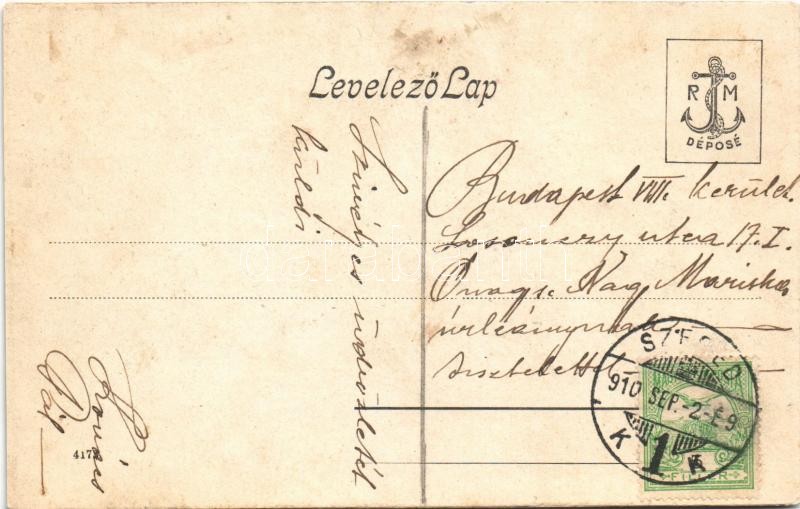 Levelező Lap
R M
DÉPOSÉ
Szívélyes üdvözletét
küldi
Kovács
Pál
Budapest VIII. kerület.
Losonczy utca 17. I.
Önags. Nagy Mariska
úrleánynak
tisztelettel
SZEGED
910 SEP. -2.-É 9
K 1 K
FILLÉR
4172